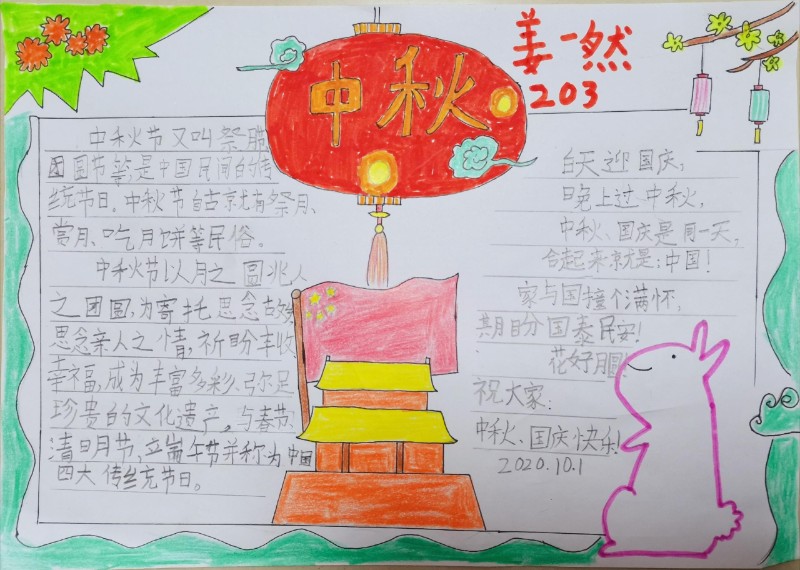 中秋
姜一然
203
中秋节又叫祭月
团圆节等,是中国民间的传
统节日。中秋节自古就有祭月、
赏月、吃月饼等民俗。
中秋节以月之圆兆人
之团圆,为寄托思念故乡
思念亲人之情,祈盼丰收
幸福,成为丰富多彩、弥足
珍贵的文化遗产。与春节、
清明节、端午节并称为中国
四大传统节日。
白天迎国庆,
晚上过中秋,
中秋、国庆是同一天,
合起来就是:中国!
家与国撞个满怀,
期盼国泰民安!
花好月圆!
祝大家:
中秋、国庆快乐!
2020.10.1